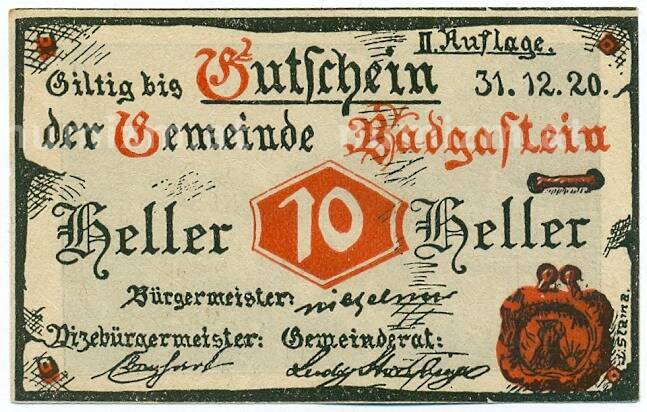 II. Auflage.
Giltig bis Gutschein 31.12.20.
der Gemeinde Badgastein
Heller 10 Heller
Bürgermeister:
Vizebürgermeister: Gemeinderat:
J. Slama.